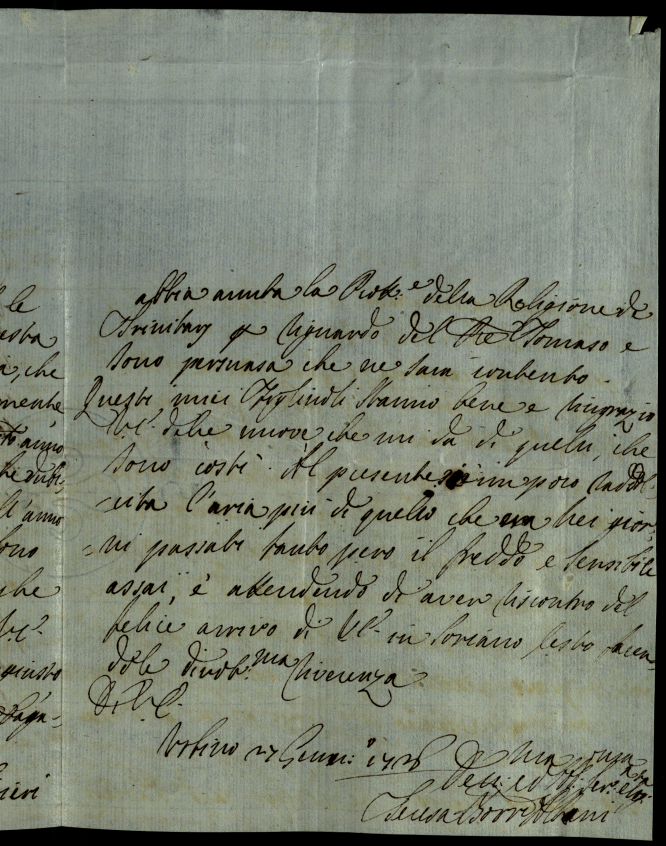 le
esta
a, che
mente
anno
li anno
ono
che
V.E.
giusto
abbia avuta la Prot.e della Religione de
Trinitarj p riguardo del Pre Tomaso e
sono persuasa che ne sara contento.
Questi miei Figliuoli stanno bene e ringrazio
V.E. delle nuove che mi da di quelli, che
sono costi. Al presente si è un poco raddol-
cita l'aria più di quello che era nei gior-
ni passati tanto pero il freddo e sensibile
assai, e attendendo di aver riscontro del
felice arrivo di V.E. in Soriano resto facen-
dole divot.ma riverenza
D. V.E.
Urbino 27 Genn.o 1728
Teresa Borromei Albani